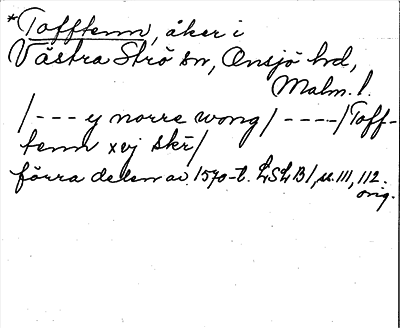 *Tofftenn, åker i
Västra Strö sn, Onsjö hd,
Malm. l.
/--- y norre wong/----/Toff-
tenn xvj skr/
förra delen av 1570-t. LSLB1, u. III, 112.
orig.